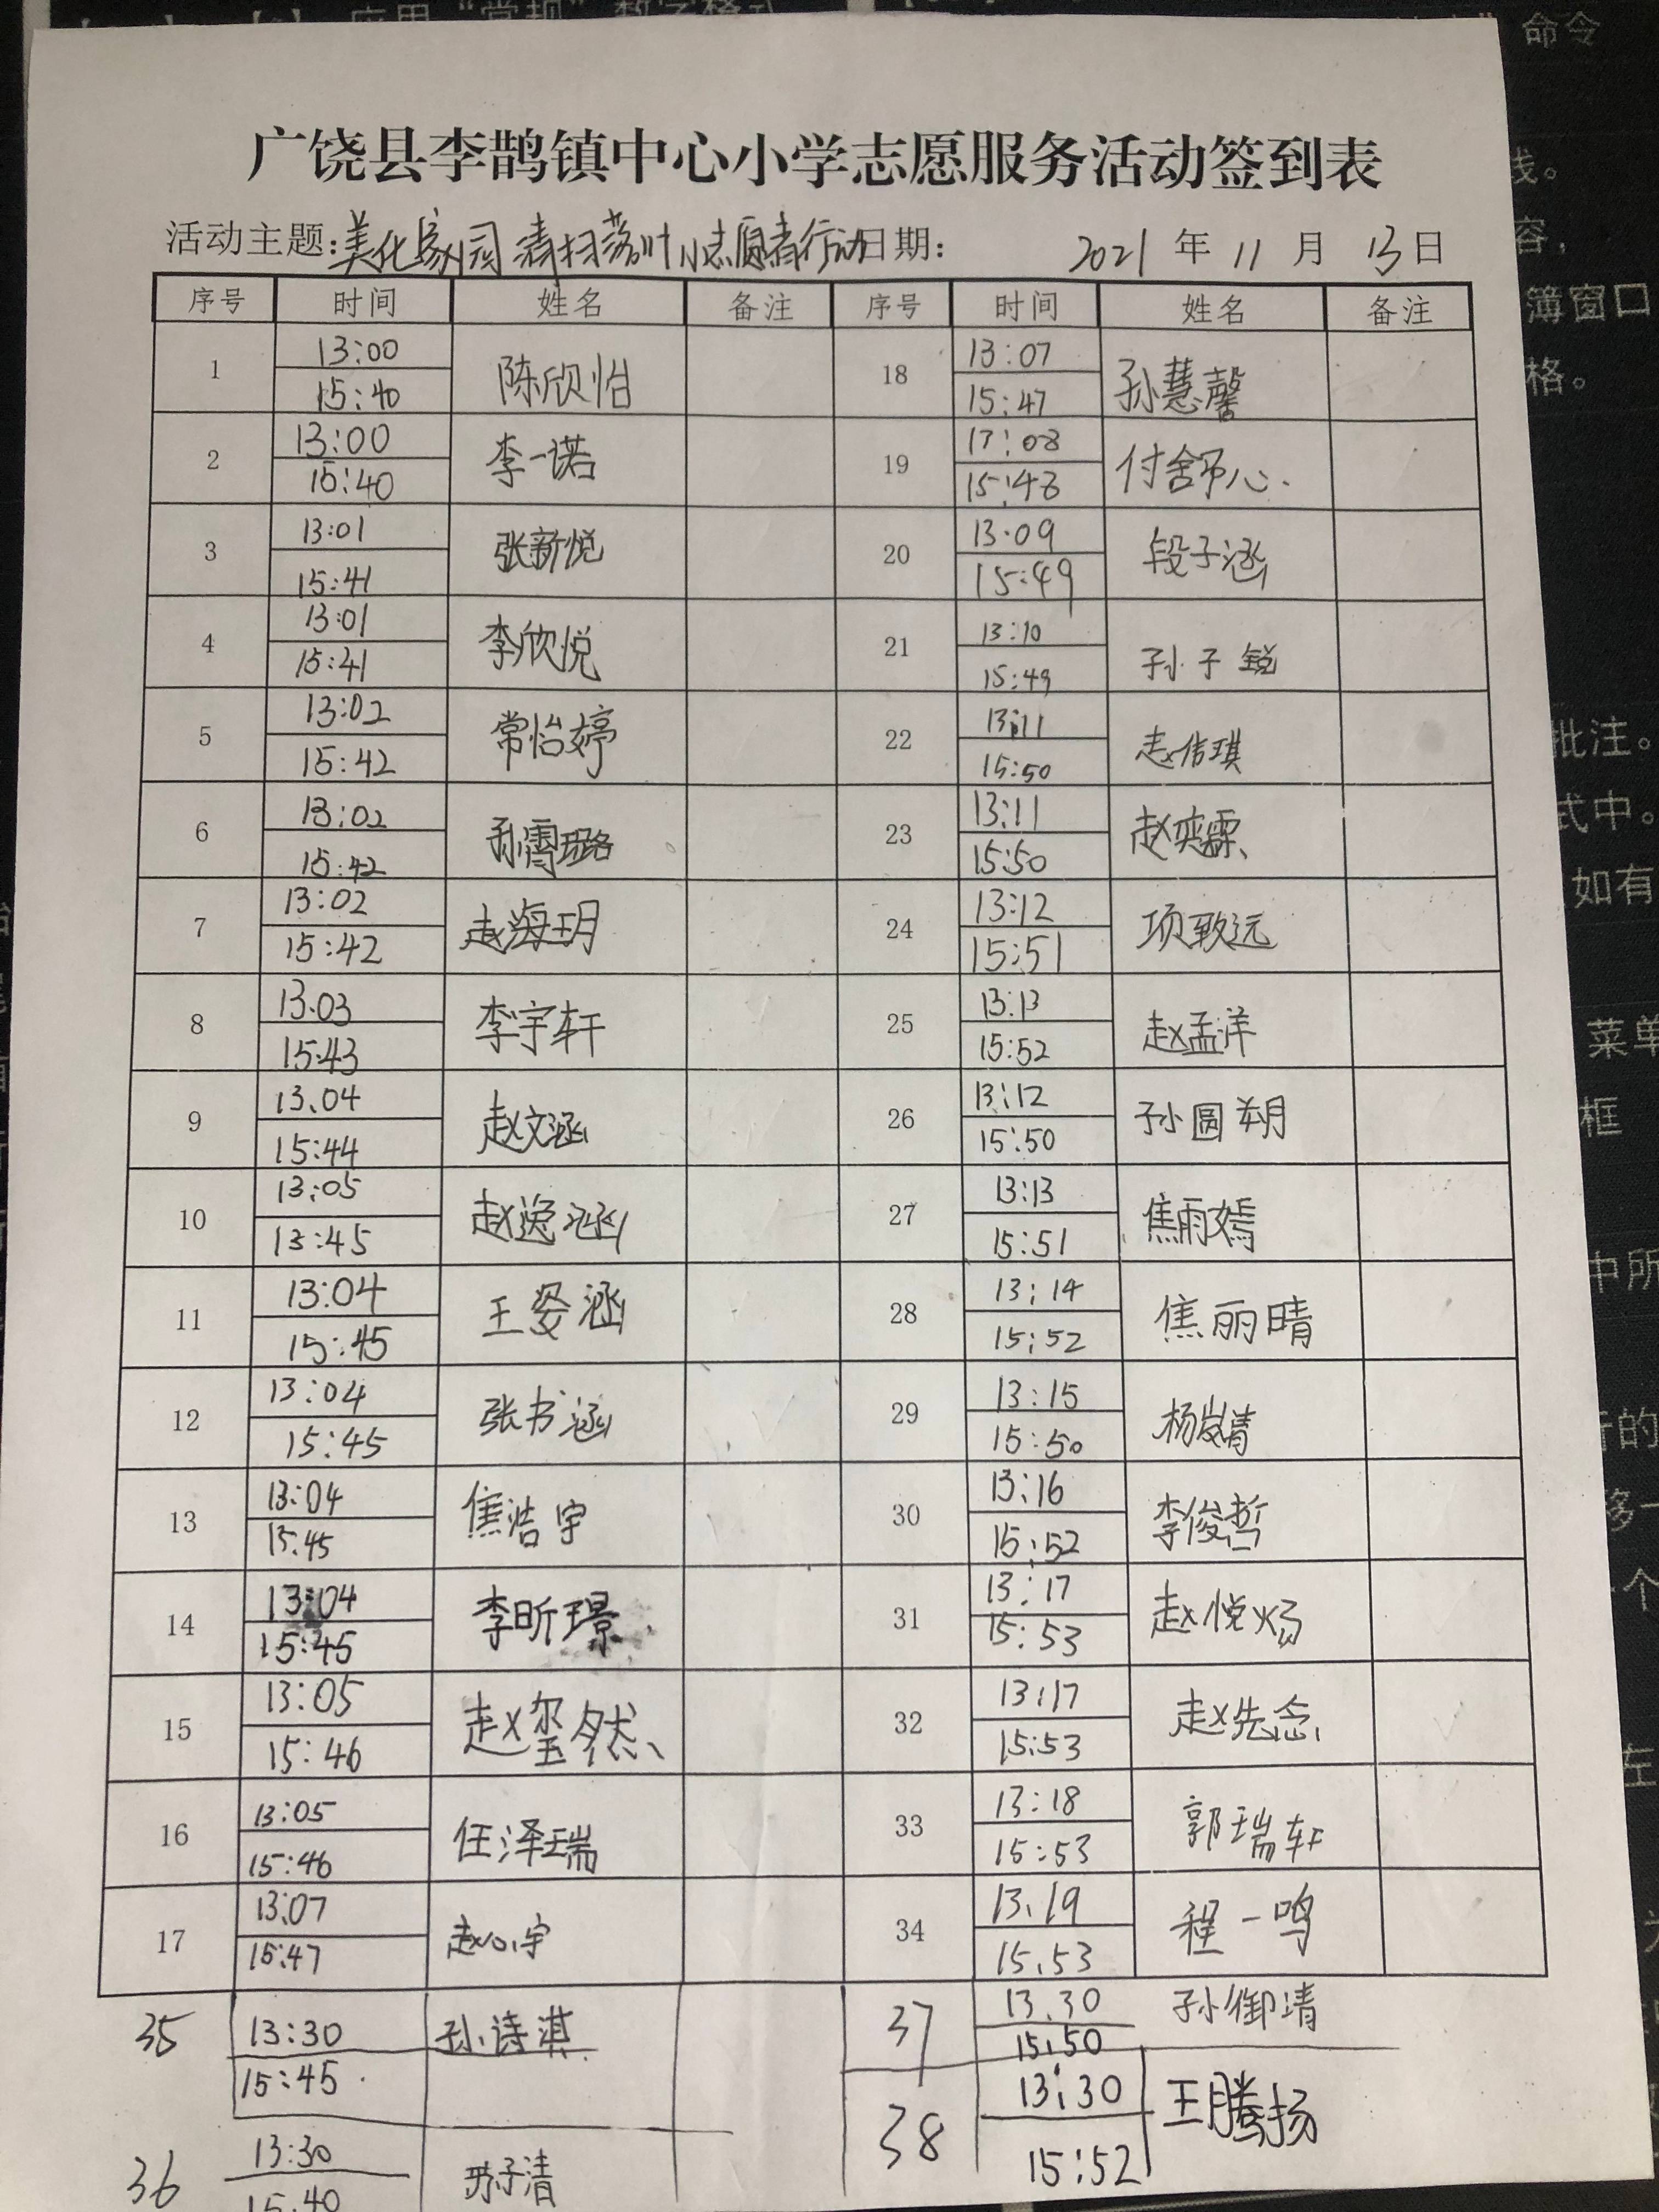 广饶县李鹊镇中心小学志愿服务活动签到表
活动主题:美化家园 清扫落叶小志愿者行动日期: 2021 年 11 月 13 日
序号 时间 姓名 备注 序号 时间 姓名 备注
1 13:00 15:40 陈欣怡 18 13:07 15:47 孙慧馨
2 13:00 15:40 李一诺 19 13:08 15:48 付舒心.
3 13:01 15:41 张新悦 20 13:09 15:49 段子涵
4 13:01 15:41 李欣悦 21 13:10 15:49 孙子锐
5 13:02 15:42 常怡婷 22 13:11 15:50 赵信琪
6 13:02 15:42 孙霄璐 23 13:11 15:50 赵奕霖
7 13:02 15:42 赵海玥 24 13:12 15:51 项致远
8 13:03 15:43 李宇轩 25 13:13 15:52 赵孟洋
9 13:04 15:44 赵文涵 26 13:12 15:50 孙圆朔
10 13:05 13:45 赵逸涵 27 13:13 15:51 焦雨嫣
11 13:04 15:45 王姿涵 28 13:14 15:52 焦丽晴
12 13:04 15:45 张书涵 29 13:15 15:50 杨岚清
13 13:04 15:45 焦浩宇 30 13:16 15:52 李俊哲
14 13:04 15:45 李昕璟 31 13:17 15:53 赵悦炀
15 13:05 15:46 赵玺然 32 13:17 15:53 赵先念
16 13:05 15:46 任泽瑞 33 13:18 15:53 郭瑞轩
17 13:07 15:47 赵心宇 34 13.19 15.53 程一鸣
35 13:30 15:45 孙诗淇 37 13.30 15.50 孙御清
36 13:30 15:40 孙子清 38 13:30 15:52 王腾扬
命令
线。
容，
簿窗口
格。
批注。
式中。
如有
菜单
框
中所
行的
移一
个
左